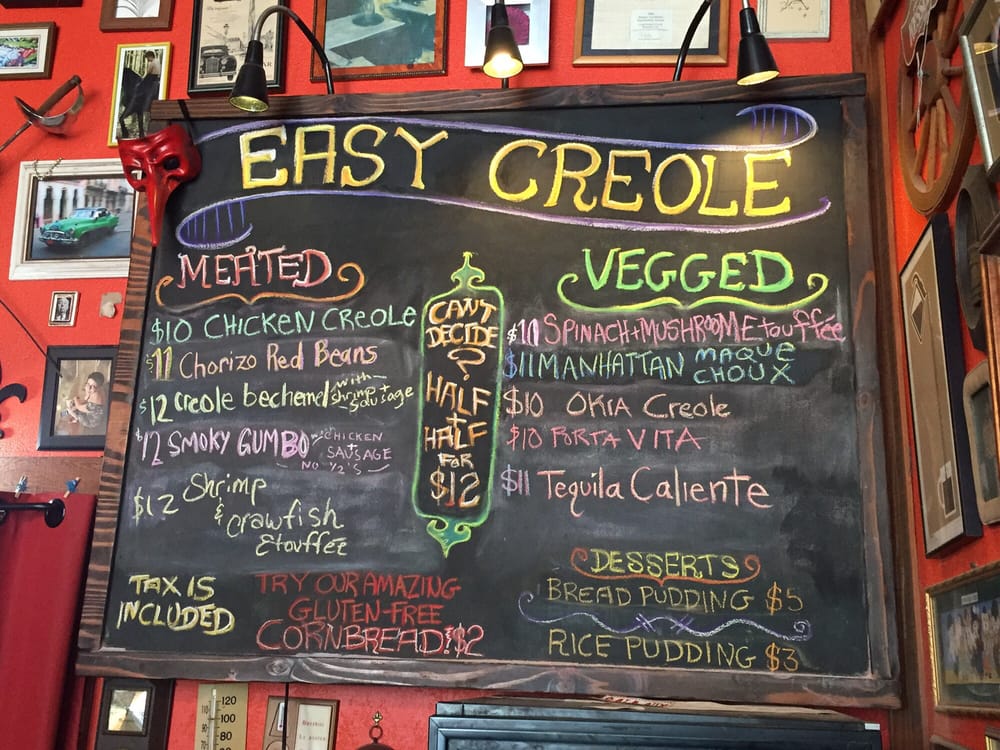 EASY CREOLE
MEATED
$10 CHICKEN CREOLE
$11 Chorizo Red Beans
$12 creole bechemel with shrimp + sausage
$12 SMOKY GUMBO with CHICKEN + SAUSAGE
NO 1/2'S
$12 Shrimp
& Crawfish
Etouffée
CAN'T
DECIDE
?
HALF
+
HALF
FOR
$12
VEGGED
$11 SPINACH + MUSHROOM Etouffée
$11 MANHATTAN MAQUE CHOUX
$10 OKRA Creole
$10 PORTA VITA
$11 Tequila Caliente
TAX IS
INCLUDED
TRY OUR AMAZING
GLUTEN-FREE
CORNBREAD! $2
DESSERTS
BREAD PUDDING $5
RICE PUDDING $3
120
100
80